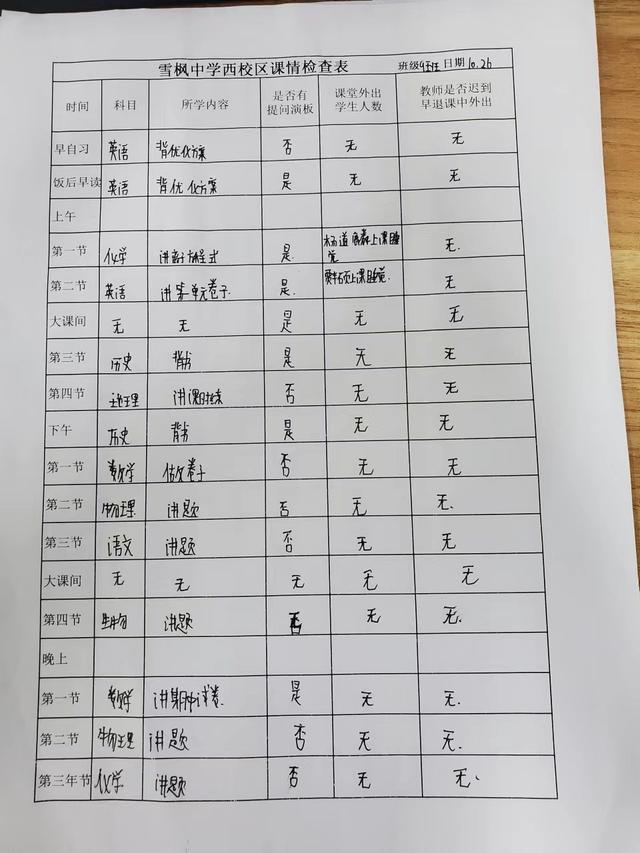 雪枫中学西校区课情检查表 班级 日期10.26
时间 科目 所学内容 是否有提问演板 课堂外出学生人数 教师是否迟到早退课中外出
早自习 英语 背优化方案 否 无 无
饭后早读 英语 背优化方案 是 无 无
上午
第一节 化学 讲离子方程式 是. 上课睡觉 无.
第二节 英语 讲第一单元卷子 是. 上课睡觉. 无
大课间 无 无 是 无 无
第三节 历史 背书 是 无 无
第四节 地理 否 无 无
下午 历史 背书 是 无 无
第一节 数学 做卷子 否 无 无
第二节 物理 讲题 否 无 无.
第三节 语文 讲题 否 无 无.
大课间 无 无 无 无 无
第四节 生物 讲题 否 无 无.
晚上
第一节 数学 讲期中试卷. 是 无 无.
第二节 物理 讲题 否 无 无.
第三年节 化学 讲题 否 无 无.